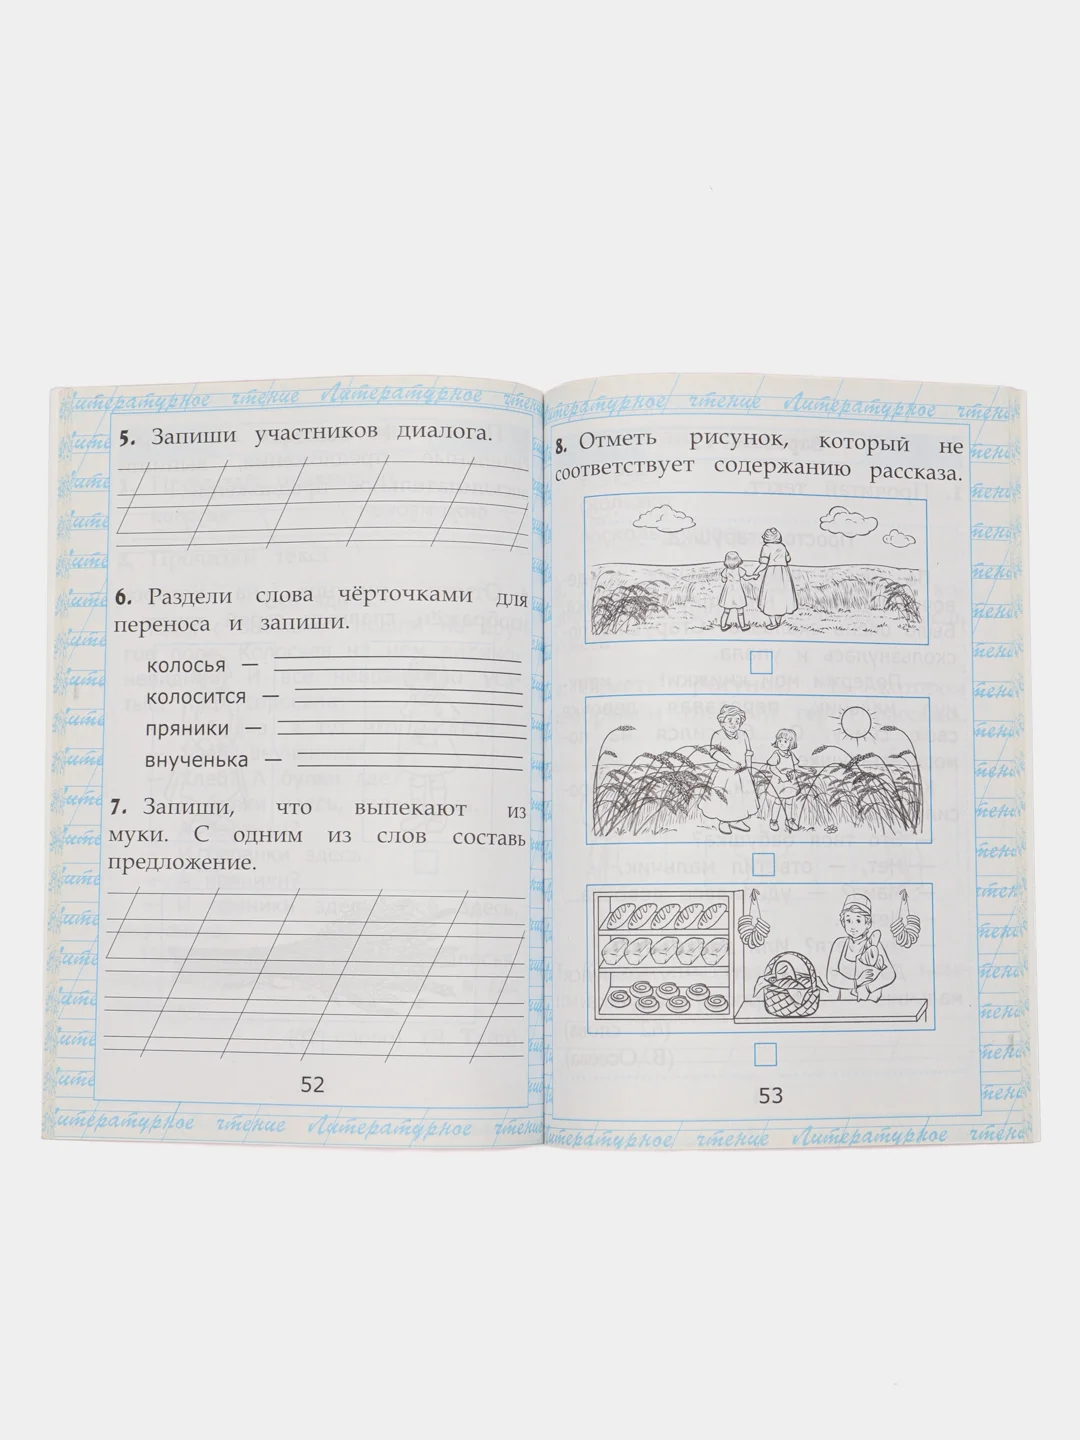 Литературное чтение Литературное чтение
5. Запиши участников диалога.
6. Раздели слова чёрточками для
переноса и запиши.
колосья —
колосится —
пряники —
внученька —
7. Запиши, что выпекают из
муки. С одним из слов составь
предложение.
52
Литературное чтение Литературное чтение
Литературное чтение Литературное чтение
8. Отметь рисунок, который не
соответствует содержанию рассказа.
53
Литературное чтение Литературное чтение